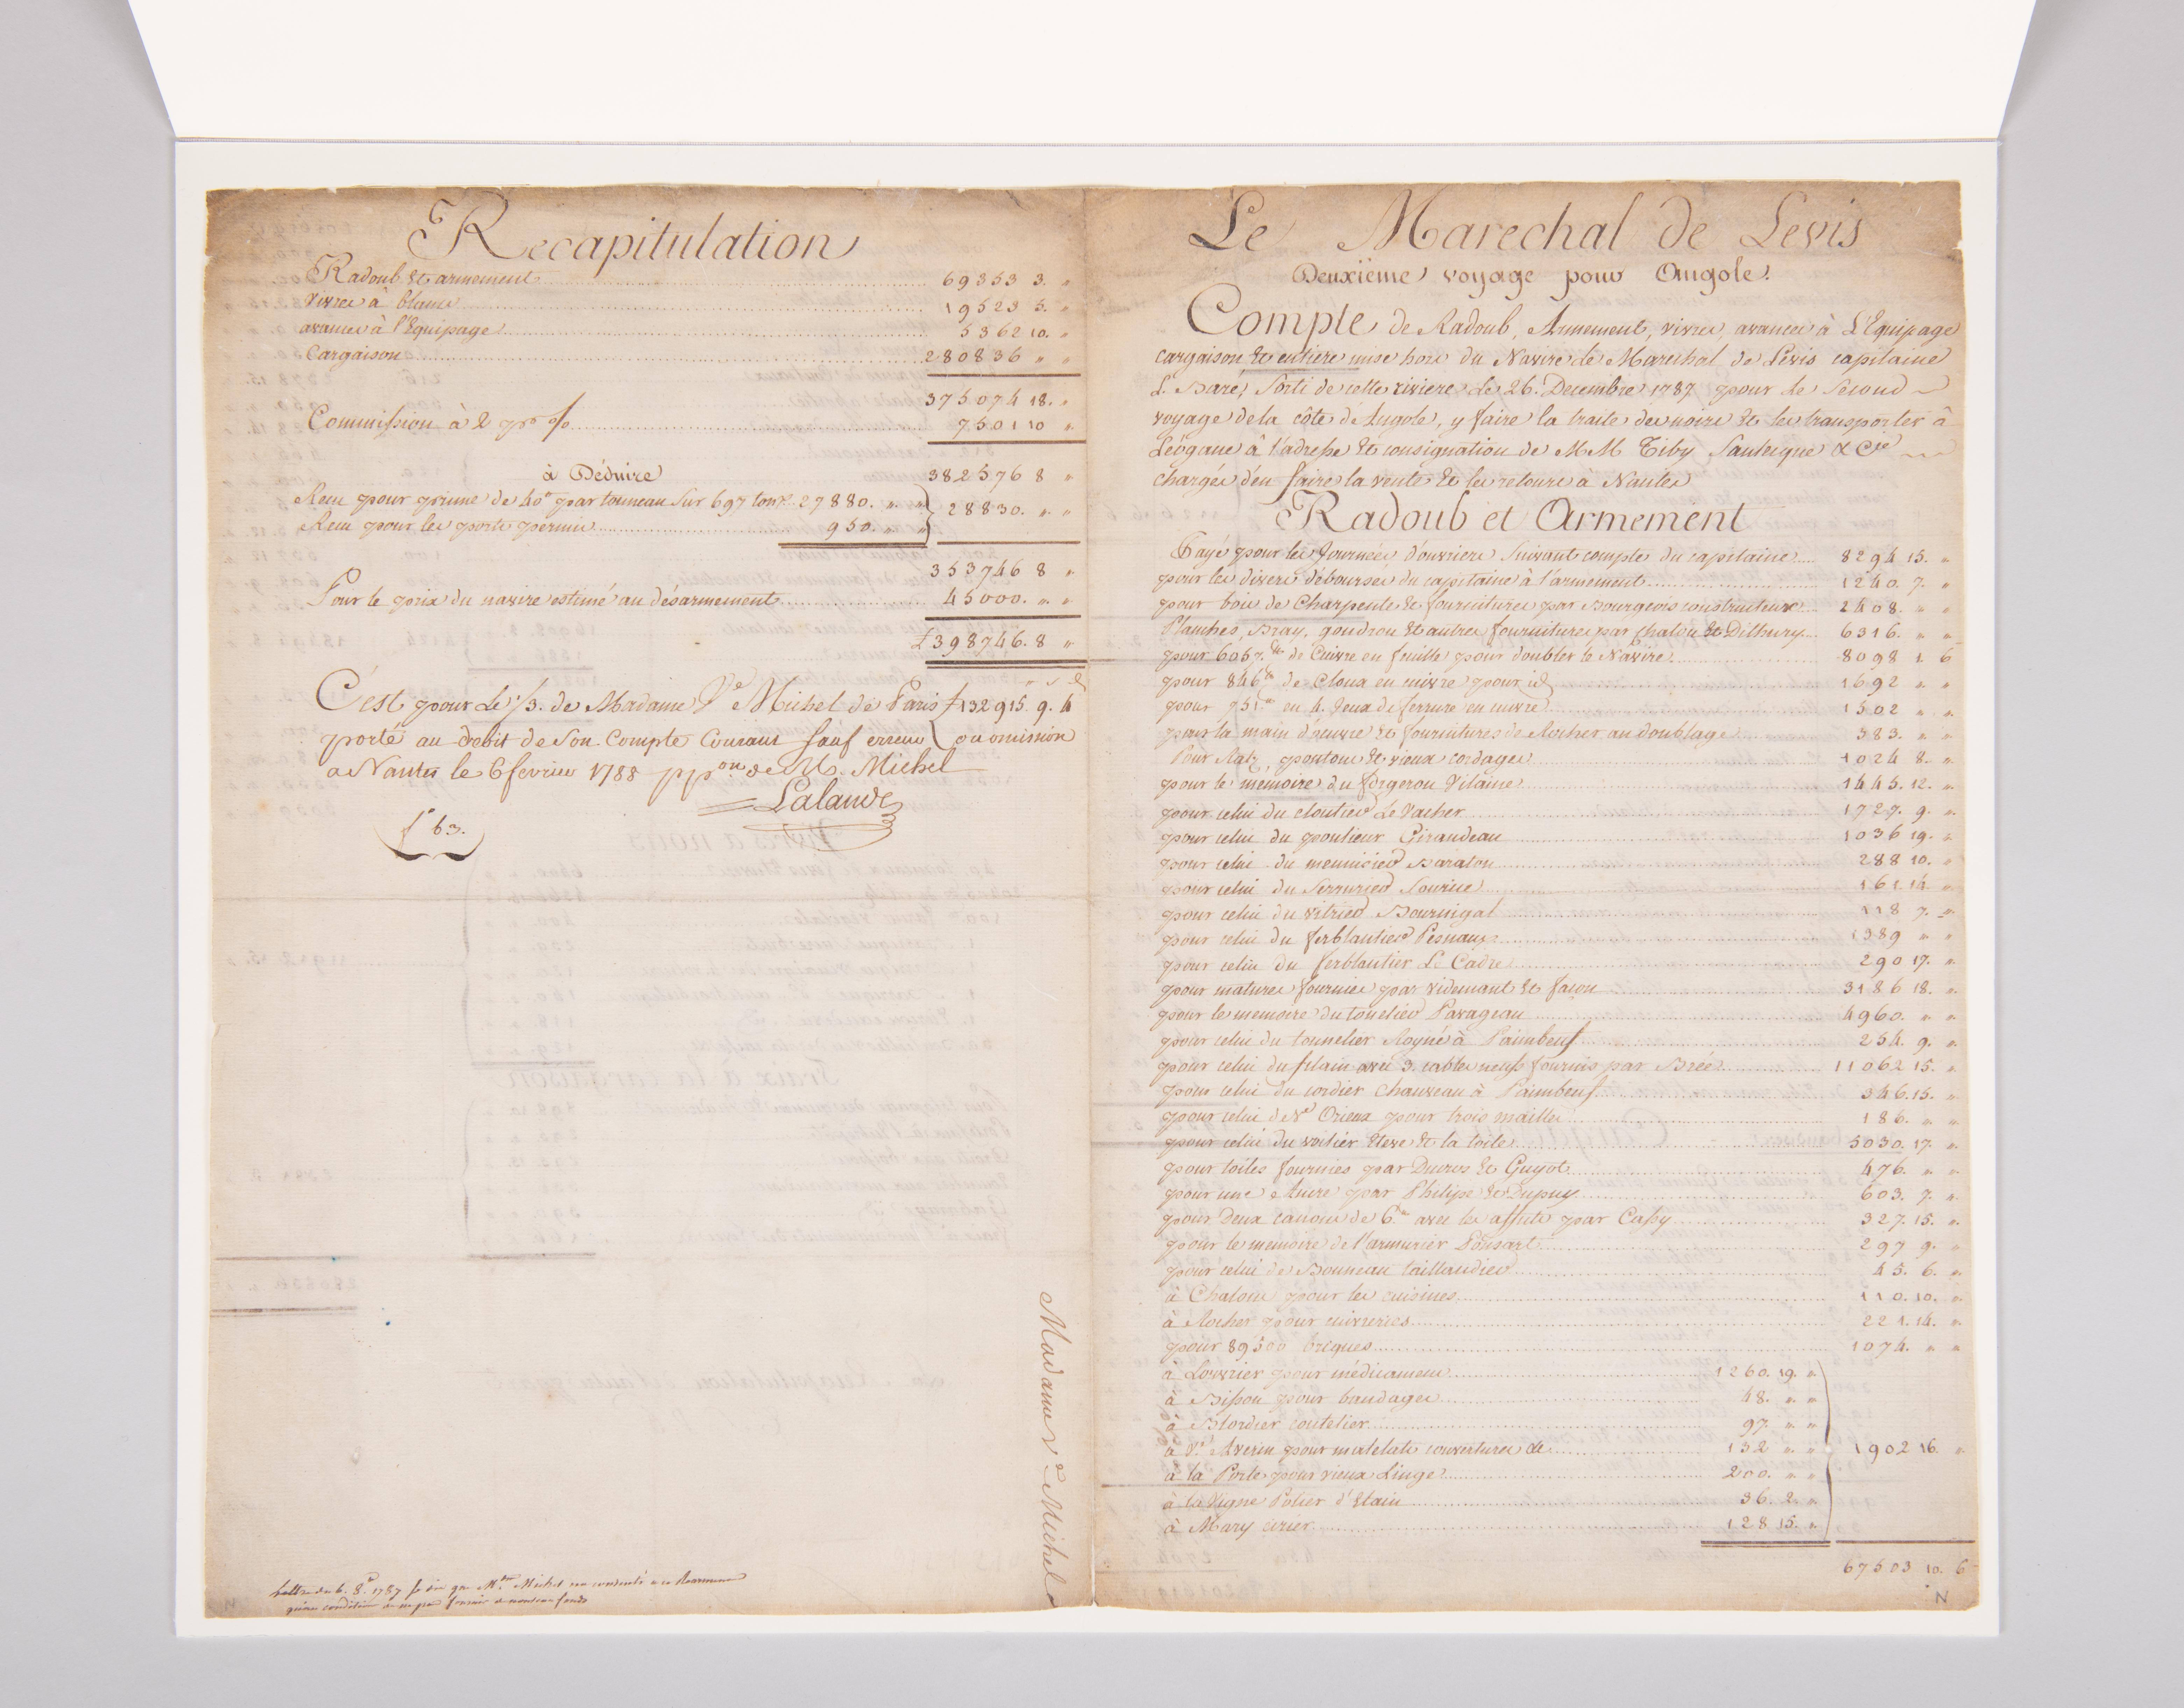 Recapitulation
Radoub & armement 69353 3. "
vivres à blancs 19523 5. "
avances à l'Equipage 5362 10. "
Cargaison 280836 " "
375074 18. "
Commission à 2 pr % 7501 10 "
382576 8 "
à Déduire
Recu pour prime de 40# par tonneau sur 697 tonx 27880. " " 28830. " "
Recu pour les ports permis 950. " "
353746 8 "
Pour le prix du navire estimé au désarmement 45000. " "
£ 398746. 8 "
C'est pour le 1/3. de Madame Ve Michel de Paris £ 132915. 9. 4
porté au debit de son Compte Courant sauf erreur ou omission
a Nantes le 6 fevrier 1788 p pon. de M. Michel
Lalande
fo 63.
Madame Ve Michel
Lettre du 6. 8.re 1787
Le Marechal de Levis
Deuxième voyage pour Angole.
Compte de Radoub, Armement, vivres, avances à L'Equipage
cargaison & entiere mise hors du Navire le Marechal de Levis capitaine
L. Baré, Sorti de cette riviere le 26. Decembre 1787 pour le second
voyage de la côte d'Angole, y faire la traite des noirs & les transporter à
Léogane à l'adresse & consignation de MM Tiby Sauteigne & Cie
chargés d'en faire la vente & les retours à Nantes
Radoub et Armement
Payé pour les Journées d'ouvriers suivant compte du capitaine 8294 15. "
pour les divers déboursés du capitaine à l'armement 1240. 7. "
pour bois de Charpente & fournitures par Bourgeois constructeur 2408. " "
Planches, Bray, goudron & autres fournitures par chalou & Dithury 6316. " "
pour 6057.# de Cuivre en feuille pour doubler le Navire 8098 1. 6
pour 846# de Cloux en cuivre pour id 1692 " "
pour 751# en 4. Jeux de ferrure en cuivre 1502 " "
pour la main d'oeuvre & fournitures de Rocher au doublage 383. " "
Pour Ratz, pontons & vieux cordages 1024 8. "
pour le memoire du forgeron Vilaine 1445. 12. "
pour celui du cloutier Le Vacher 1727. 9. "
pour celui du poulieur Giraudeau 1036 19. "
pour celui du menuisier Baraton 288 10. "
pour celui du Serrurier Sourice 161. 14. "
pour celui du vitrier Bournigal 118 7. "
pour celui du ferblantier Pesnaux 1389 " "
pour celui du ferblantier Le Cadre 290 17. "
pour matures fournies par videmant & facon 3186 18. "
pour le memoire du tonelier Pavageau 4960. " "
pour celui du tonnelier Royné à Paimbeuf 254. 9. "
pour celui du filain avec 3. cables neufs fournis par Brée 11062 15. "
pour celui du cordier Chauveau à Paimbeuf 346. 15. "
pour celui de Nl Orieux pour trois mailles 186. " "
pour celui du voilier Steve & la toile 5030. 17. "
pour toiles fournies par Ducros & Guyot 476. " "
pour une Ancre par Philipe & Dupuy 603. 7. "
pour deux canons de 6.# avec les affuts par Cassy 327. 15. "
pour le memoire de l'armurier Ponsart 297 9. "
pour celui de Bonneau taillandier 45. 6. "
à Chalou pour les cuisines 110. 10. "
à Rocher pour cuivreries 221. 14. "
pour 89500 briques 1074. " "
à Louvrier pour médicamens 1260. 19. "
à Bisson pour bandages 48. " "
à Blordier coutelier 97. " "
à Ve Averin pour matelats couvertures &c 132 " " 1902 16. "
à la Porte pour vieux Linge 200. " "
à la Vigne Potier d'Etain 36. 2. "
à Mary cirier 128 15. "
67503 10. 6
N